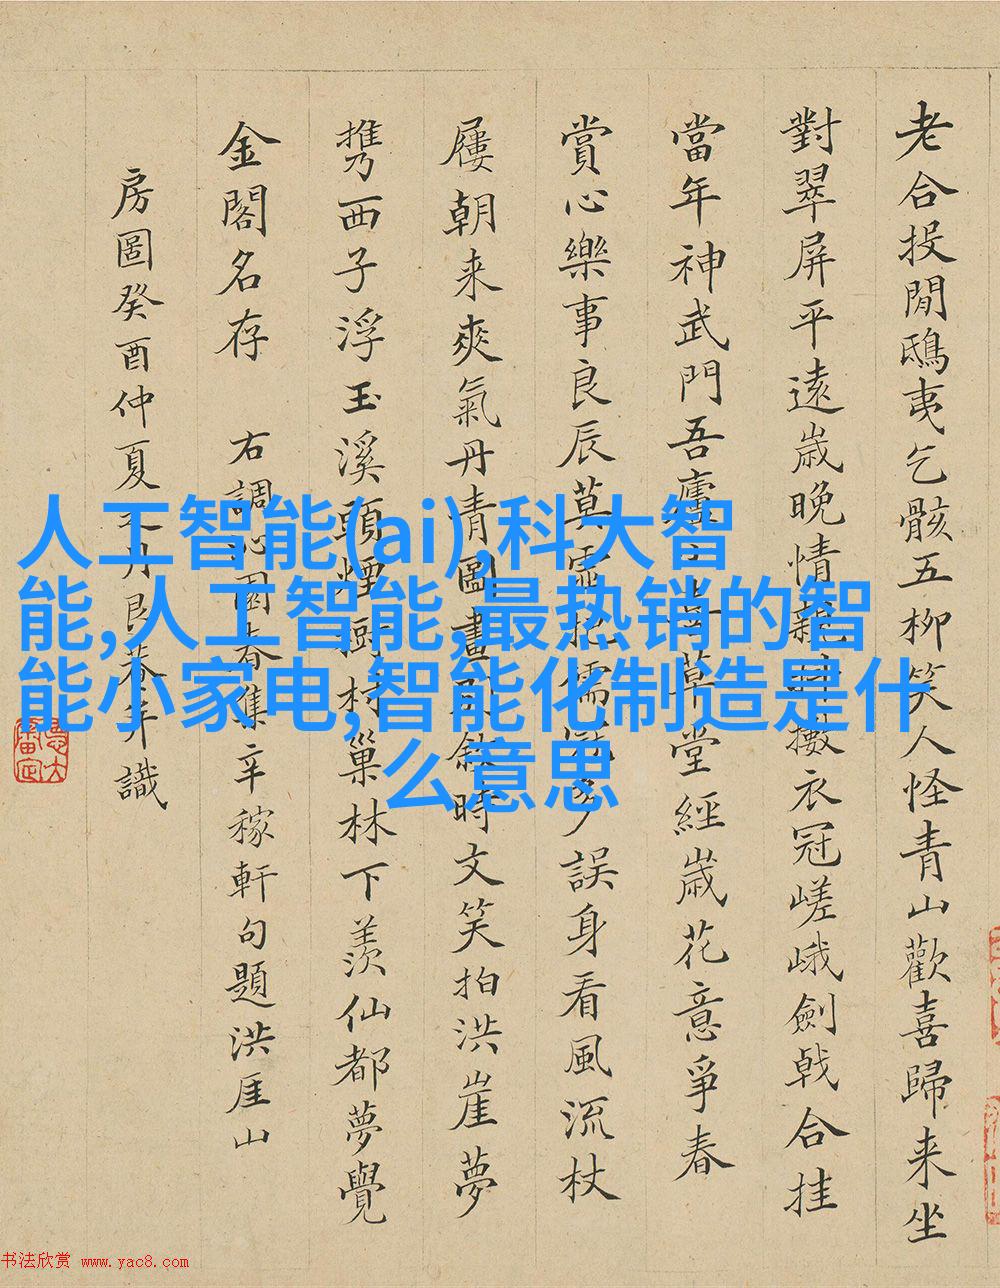 老合投閒鴟夷乞骸五柳笑人怪青山歡喜歸来坐
對翠屏平遠嵗晚情親衣冠嵯峨劍戟合挂
當年神武門吾廬草堂經嵗花意爭春
賞心樂事良辰莫儒多誤身看風流杖
屨朝来爽氣丹青圖畫時文笑拍洪崖夢
携西子浮玉溪頭煙村巢林下羡仙都夢覺
金閣名存 右調沁園春集辛稼軒句題洪厓山
房圖癸酉仲夏月識
人工智能(ai),科大智
能,人工智能,最热销的智
能小家电,智能化制造是什
么意思
书法欣赏 www.yac8.com